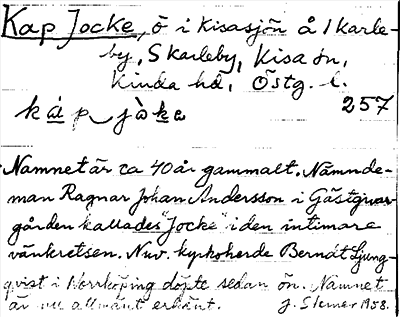 Kap Jocke, ö i Kisasjön å 1 Karle-
by, Skarleby, Kisa sn,
Kinda hd, Östg. l.
257
káp jòke
Namnet är ca 40 år gammalt. Nämnde-
man Ragnar Johan Andersson i Gästgivar-
gården kallades "Jocke" i den intimare
vänkretsen. Nuv. kyrkoherde Berndt Ljung-
qvist i Norrköping döpte sedan ön. Namnet
är nu allmänt erkänt. J. Sterner 1958.